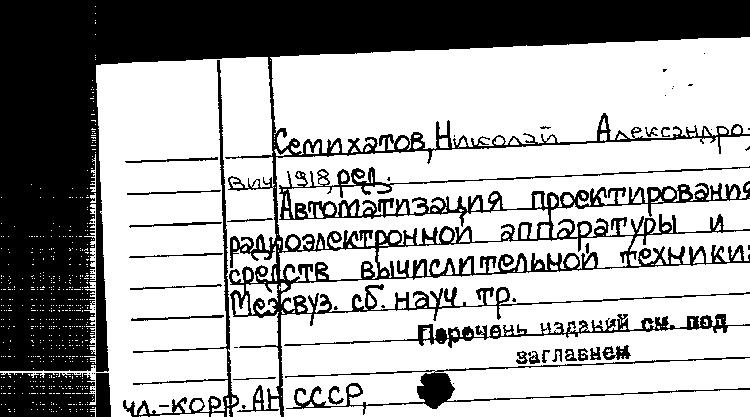 Семихатов, Николай Александро-
вич, 1918, ред.
Автоматизация проектирования
радиоэлектронной аппаратуры и
средств вычислительной техники:
Межвуз. сб. науч. тр.
Перечень изданий см. под
заглавием
чл.-корр. АН СССР,